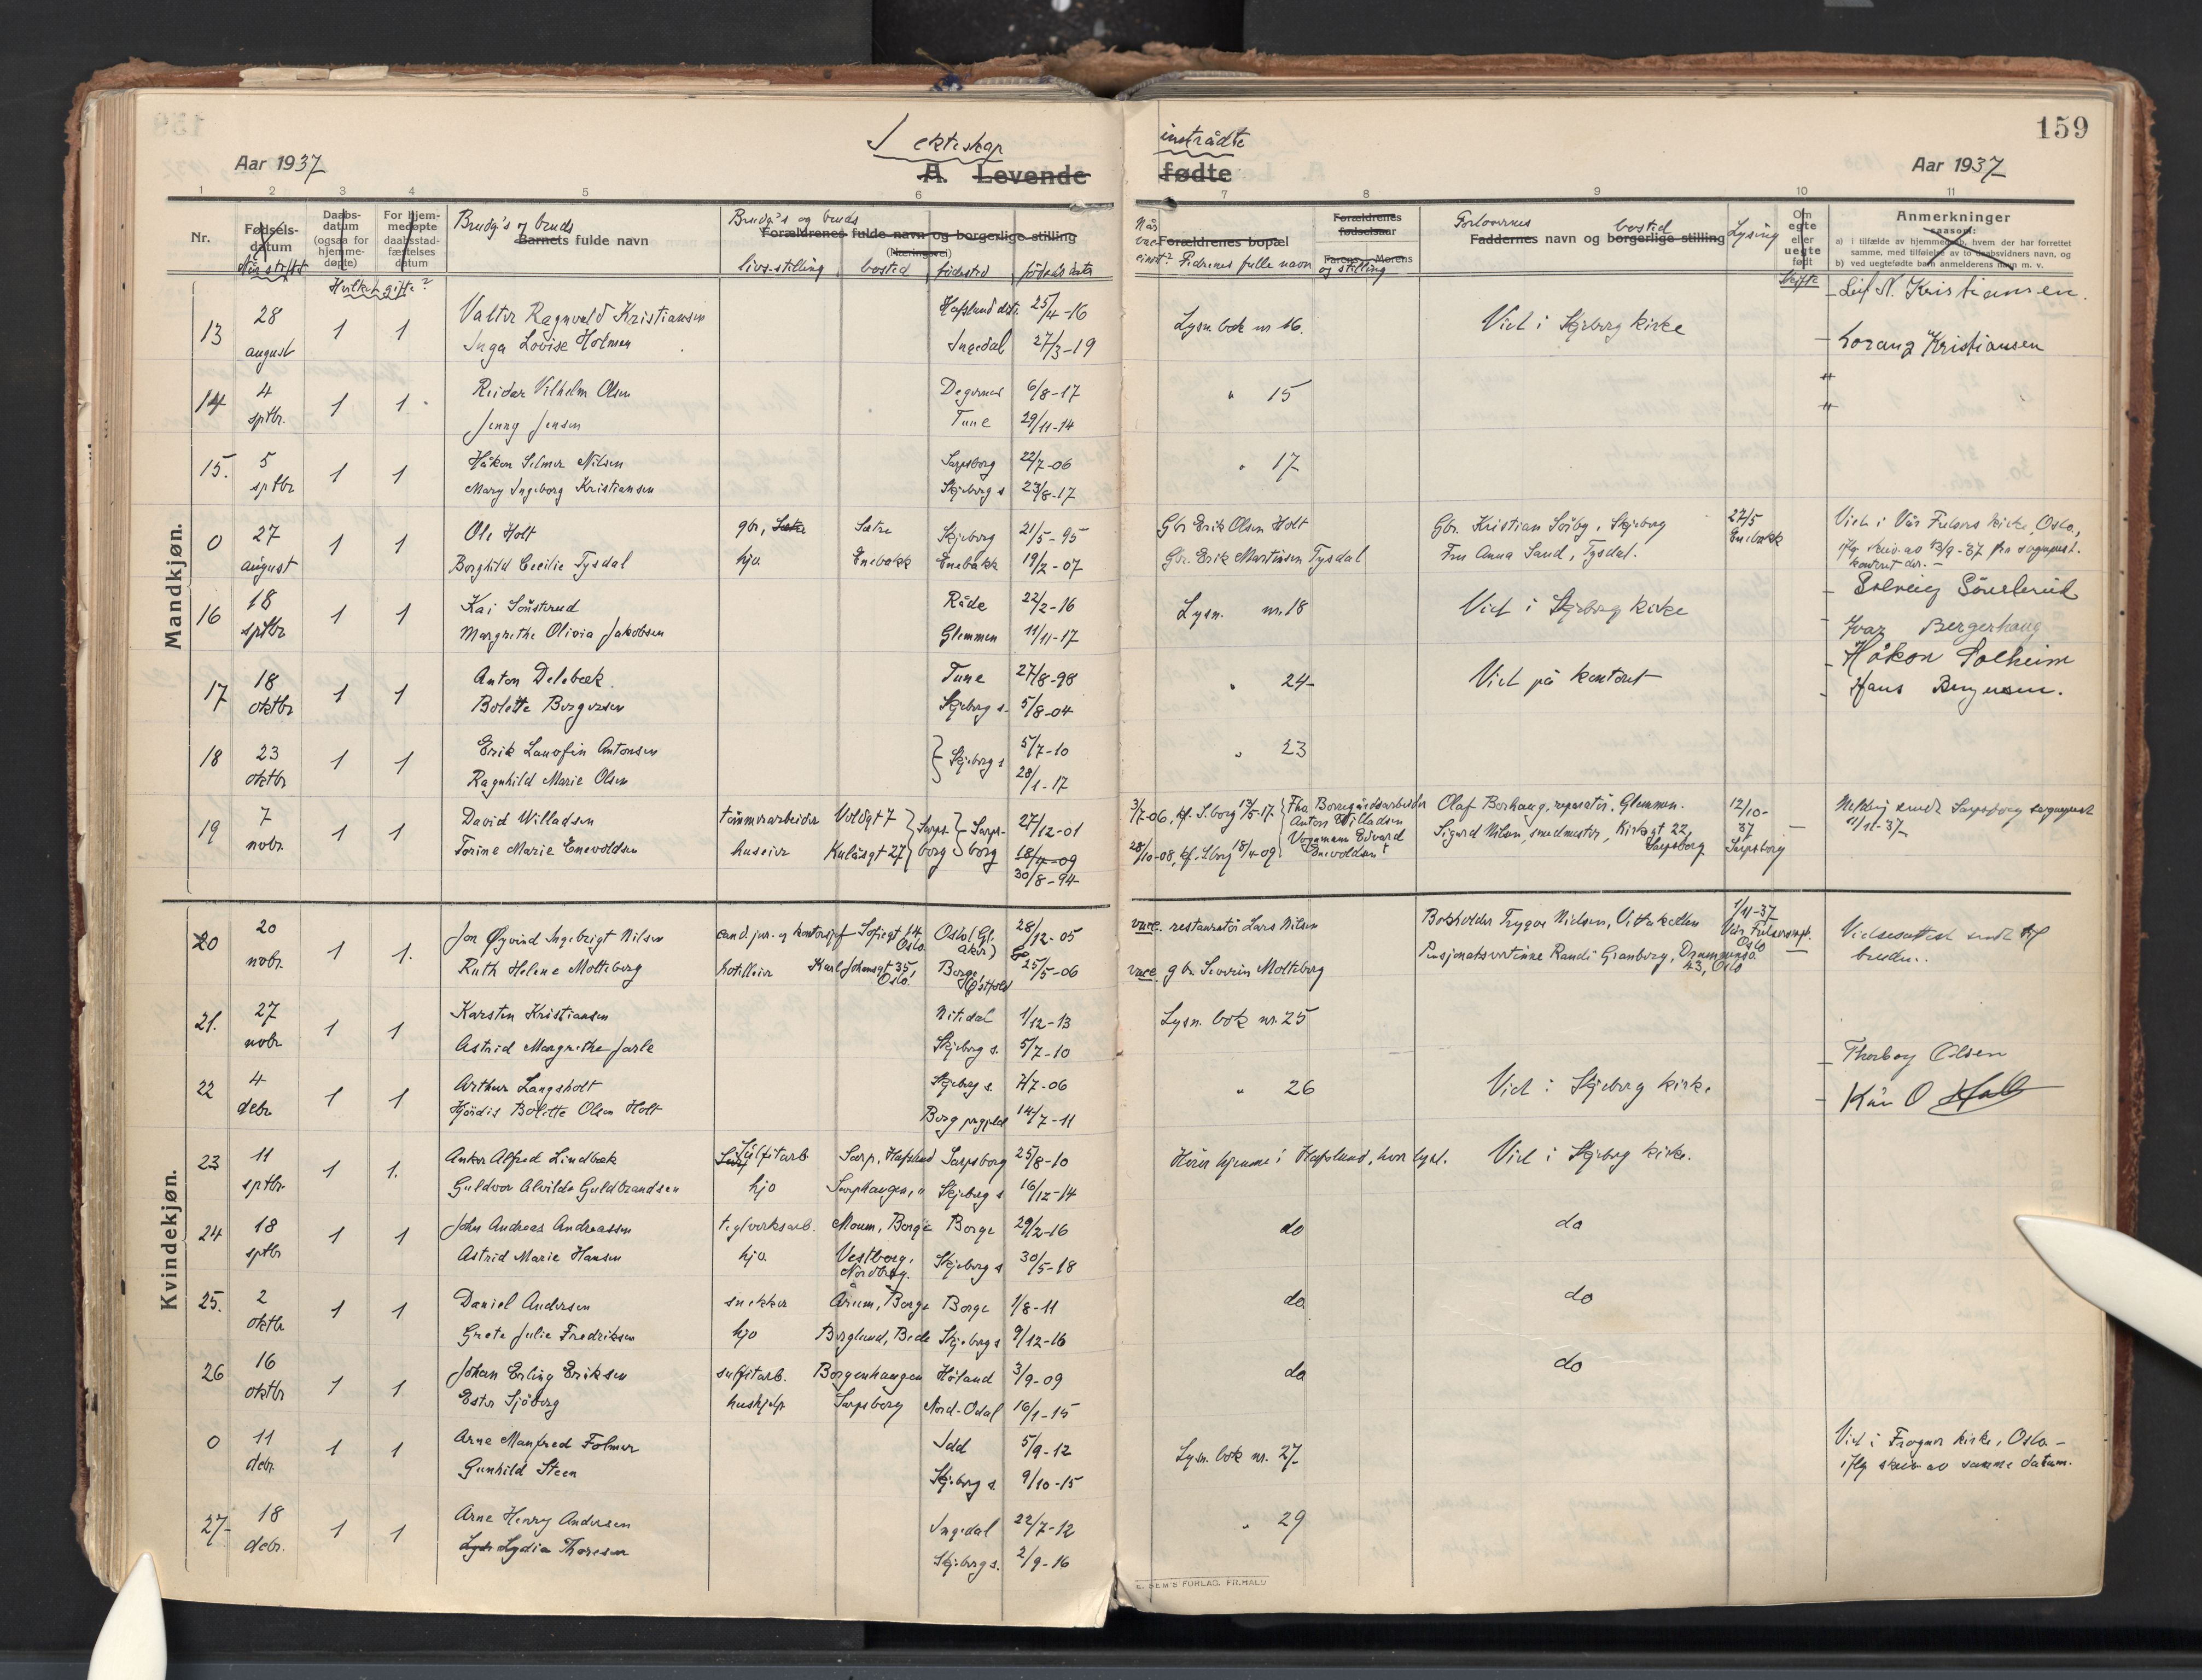 159
Aar 1937
I ekteskap
A. Levende
inntrådte
fødte
Aar 1937
1 2 3 4 5 6 7 8 9 10 11
Nr.
Fødsels-
datum
Daabs-
datum
(ogsaa for
hjemme-
døpte)
For hjem-
medøpte
daabsstad-
fæstelses
datum
Hvilket gifte?
Brudg's og bruds
Barnets fulde navn
Brudg's og bruds
Forældrenes fulde navn og borgerlige stilling
(Næringsvei)
livs-stilling bosted fødested fødselsdato
Forældrenes bopæl
Fedrenes fulle navn og stilling
Forældrenes
fødselsaar
Farens Morens
Forlovernes bosted
Faddernes navn og borgerlige stilling
Lysing
Om
egte
eller
uegte
født
Anmerkninger
saasom:
a) i tilfælde av hjemmedaab, hvem der har forrettet
samme, med tilføielse av to daabsvidners navn, og
b) ved uegtefødte barn anmelderens navn m. v.
Mandkjøn.
13 28 august 1 1
Valter Ragnvald Kristiansen Hafslund 25/4-16
Inga Lovise Holmen Ingedal 27/3-19
Lysn. bok nr 16. Viet i Skjeberg kirke
Leif N. Kristiansen.
Lorang Kristiansen
14 4 sptbr. 1 1
Reidar Vilhelm Olsen Degernes 6/8-17
Jenny Jensen Tune 29/11-14
" 15
15. 5 sptbr 1 1
Håkon Selmer Nilsen Sarpsborg 22/7-06
Mary Ingeborg Kristiansen Skjeberg s 23/8-17
" 17
0 27 august 1 1
Ole Holt gbr, Sætre Skjeberg 21/5-95
Borghild Cecilie Tysdal hjo Enebakk Enebakk 19/2-07
Gbr Erik Olsen Holt Gbr. Kristian Sørby, Skjeberg 27/5 Enebakk
Gbr. Erik Martinsen Tysdal Fru Anna Sand, Tysdal.
Viet i Vår Frelsers kirke, Oslo,
16 18 sptbr 1 1
Kai Sønsterud Råde 22/2-16
Margrethe Olivia Jakobsen Glemmen 11/11-17
Lysn. nr. 18 Viet i Skjeberg kirke
Solveig Sønsterud
Ivar Bergerhaug
17 18 oktbr 1 1
Anton Delebæk Tune 27/8-98
Bolette Bergersen Skjeberg s. 5/8-04
" 24 Viet på kontoret
Håkon Solheim
Hans Bergersen.
18 23 oktbr 1 1
Erik Laurfin Antonsen Skjeberg s 5/7-10
Ragnhild Marie Olsen 28/1-17
" 23
19 7 nobr. 1 1
David Willadsen tømmerarbeider Voldgt 7 Sarpsborg Sarpsborg 27/12-01
Torine Marie Enevoldsen huseier Kulåsgt 27 18/4-09
30/8-94
3/7-06, kf. S.borg 13/5-17 Fha Borregårdsarbeider Anton Willadsen
28/10-08, kf. S.borg 18/4-09 Vognmann Edvard Enevoldsen
Olaf Borhaug, reparatør, Glemmen. 12/10-37
Sigurd Nilsen, smedmester, Kirkegt 22, Sarpsborg Sarpsborg
Melding sendt Sarpsborg sogneprest
11/11-37
Kvindekjøn.
20 20 nobr. 1 1.
Jon Øyvind Ingebrigt Nilsen cand. jur. og kontorsjef Sofiegt 14 Oslo Oslo (Gl. Aker) 28/12-05
Ruth Helene Molteberg hotelleier Karl Johansgt 35, Oslo. Borge, Østfold 25/5-06
væe. restauratør Lars Nilsen
væe. gbr. Severin Molteberg
Bokholder Trygve Nielsen, Vettakollen 1/11-37 Vår Frelsers mgt. Oslo
Pensjonatsvertinne Randi Granberg, Drammensv. 43, Oslo
Vielsesattest sendt til
bruden.
21. 27 nobr 1 1
Karsten Kristiansen Nitedal 1/12-13
Astrid Margrethe Jarle Skjeberg s. 5/7-10
Lysn. bok nr. 25
22 4 debr. 1 1
Arthur Langsholt Skjeberg s. 7/7-06
Hjørdis Bolette Olsen Holt 14/7-11
" 26 Viet i Skjeberg kirke.
Thorboy Olsen
Kåre O Holt
23 11 sptbr. 1 1.
Anker Alfred Lindbæk Sulfitarb Sarp, Hafslund Sarpsborg 25/8-10
Guldvor Alvilde Guldbrandsen hjo Sarphaugen, " Skjeberg s 16/12-14
Hører hjemme i Hafslund, hvor lyst. Viet i Skjeberg kirke.
24 18 sptbr 1 1
John Andreas Andreassen teglverksarb. Moum, Borge Borge 29/2-16
Astrid Marie Hansen hjo. Vestborg, Nordberg. Skjeberg s 30/5-18
do do
25. 2 oktbr 1 1
Daniel Andersen snekker Årum, Borge Borge 1/8-11
Grete Julie Fredriksen hjo Berglund, Bede Skjeberg s 9/12-16
do do
26 16 oktbr 1 1
Johan Erling Eriksen sulfitarb. Borgenhaugen Høland 3/9-09
Ester Sjöberg hushjelp Sarpsborg Nord-Odal 16/1-15
do do
0 11 debr. 1 1
Arne Manfred Folmer Idd 5/9-12
Gunhild Steen Skjeberg s. 9/10-15
Lysn. bok nr. 27
Viet i Frogner kirke, Oslo -
iflg skriv av samme datum.
27 18 debr. 1 1
Arne Henry Andersen Ingedal 22/7-12
Lydia Thoresen Skjeberg s. 2/9-16
" 29
E. SEM'S FORLAG. FR.HALD